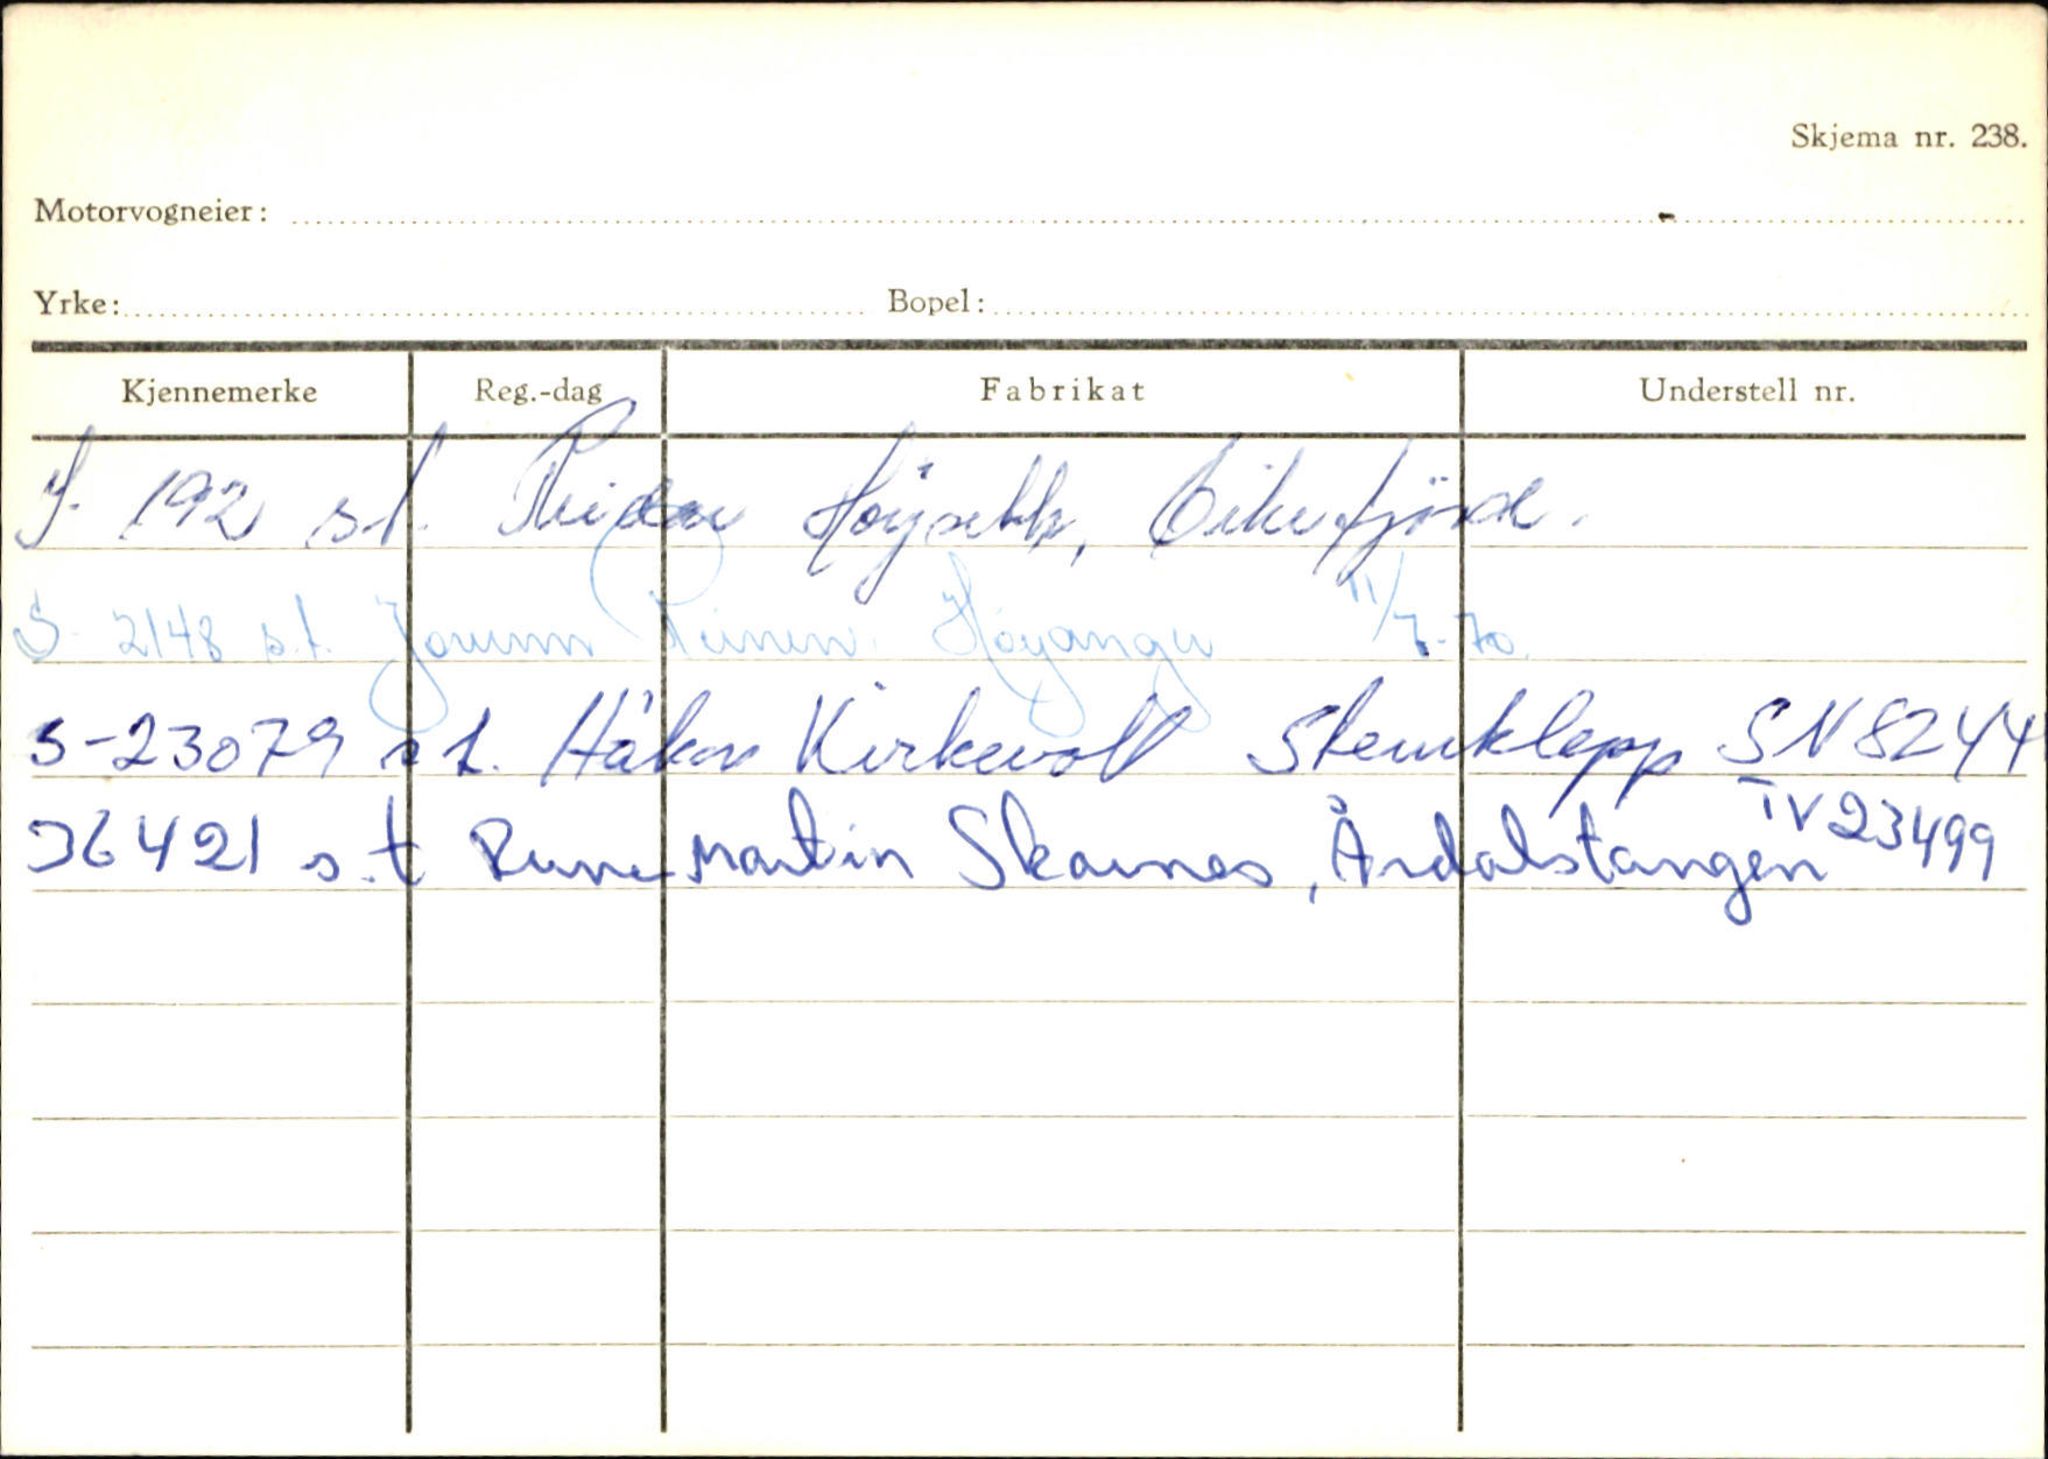 Skjema nr. 238.
Motorvogneier:
Yrke: Bopel:
Kjennemerke Reg.-dag Fabrikat Understell nr.
S. 192 s.t. Reidar Høyseth, Eikefjord.
S- 2148 s.t. Jorunn Reinen. Høyanger 11/7-70.
S-23079 s t. Håkon Kirkevoll Steinklepp SN8244
36421 s.t Rune Martin Skarnes, Årdalstangen TV23499